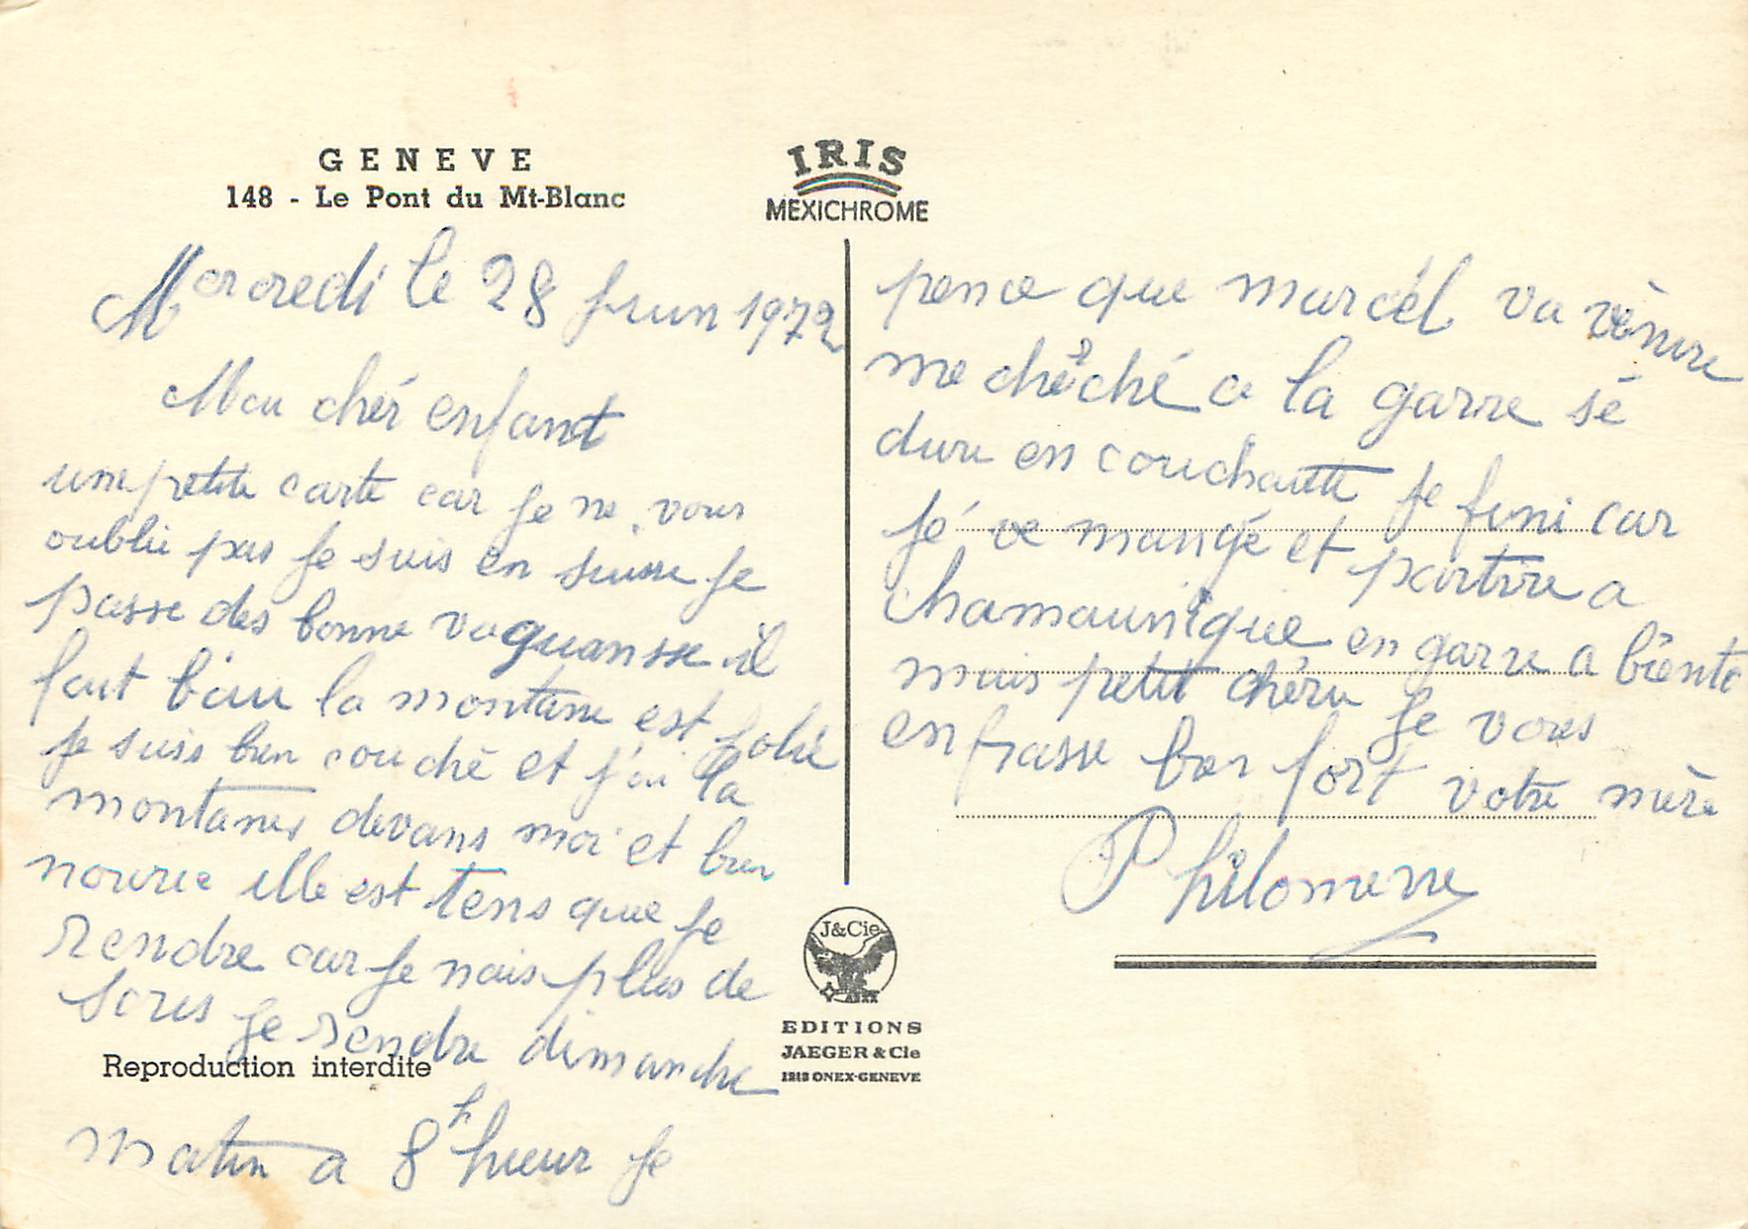 GENEVE
148 - Le Pont du Mt-Blanc
IRIS
MEXICHROME
Mercredi le 28 Juin 1972
Mon chér enfant
une petite carte car je ne vous
oublie pas je suis en suisse je
passe des bonne vaquansse il
fait b'eau la montane est jolie
je suis bien couché et j'ai la
montanes devans moi et bien
nourie elle est tens que je
rendre car je nais plus de
sous je rendre dimanche
matin a 8h heeur je
pence que marcél va vênire
me chêrché a la garre sé
dure en couchaitte je fini car
jé ve mangé et partire a
chamaunique en garre a biente
mais petit chéri je vous
enfrasse bien fort votre mère
Philomene
J&Cie
EDITIONS
JAEGER & Cie
1213 ONEX-GENEVE
Reproduction interdite